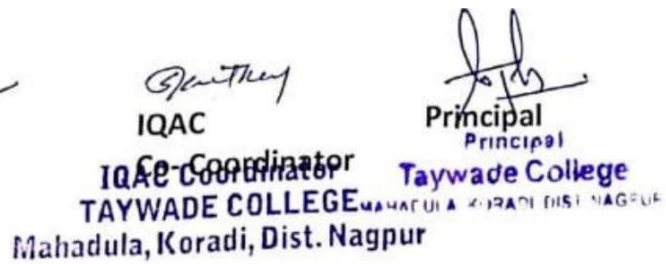 IQAC
Co-Coordinator
IQAC Coordinator
TAYWADE COLLEGE
Mahadula, Koradi, Dist. Nagpur
Principal
Principal
Taywade College
MAHADULA KORADI DIST NAGPUR